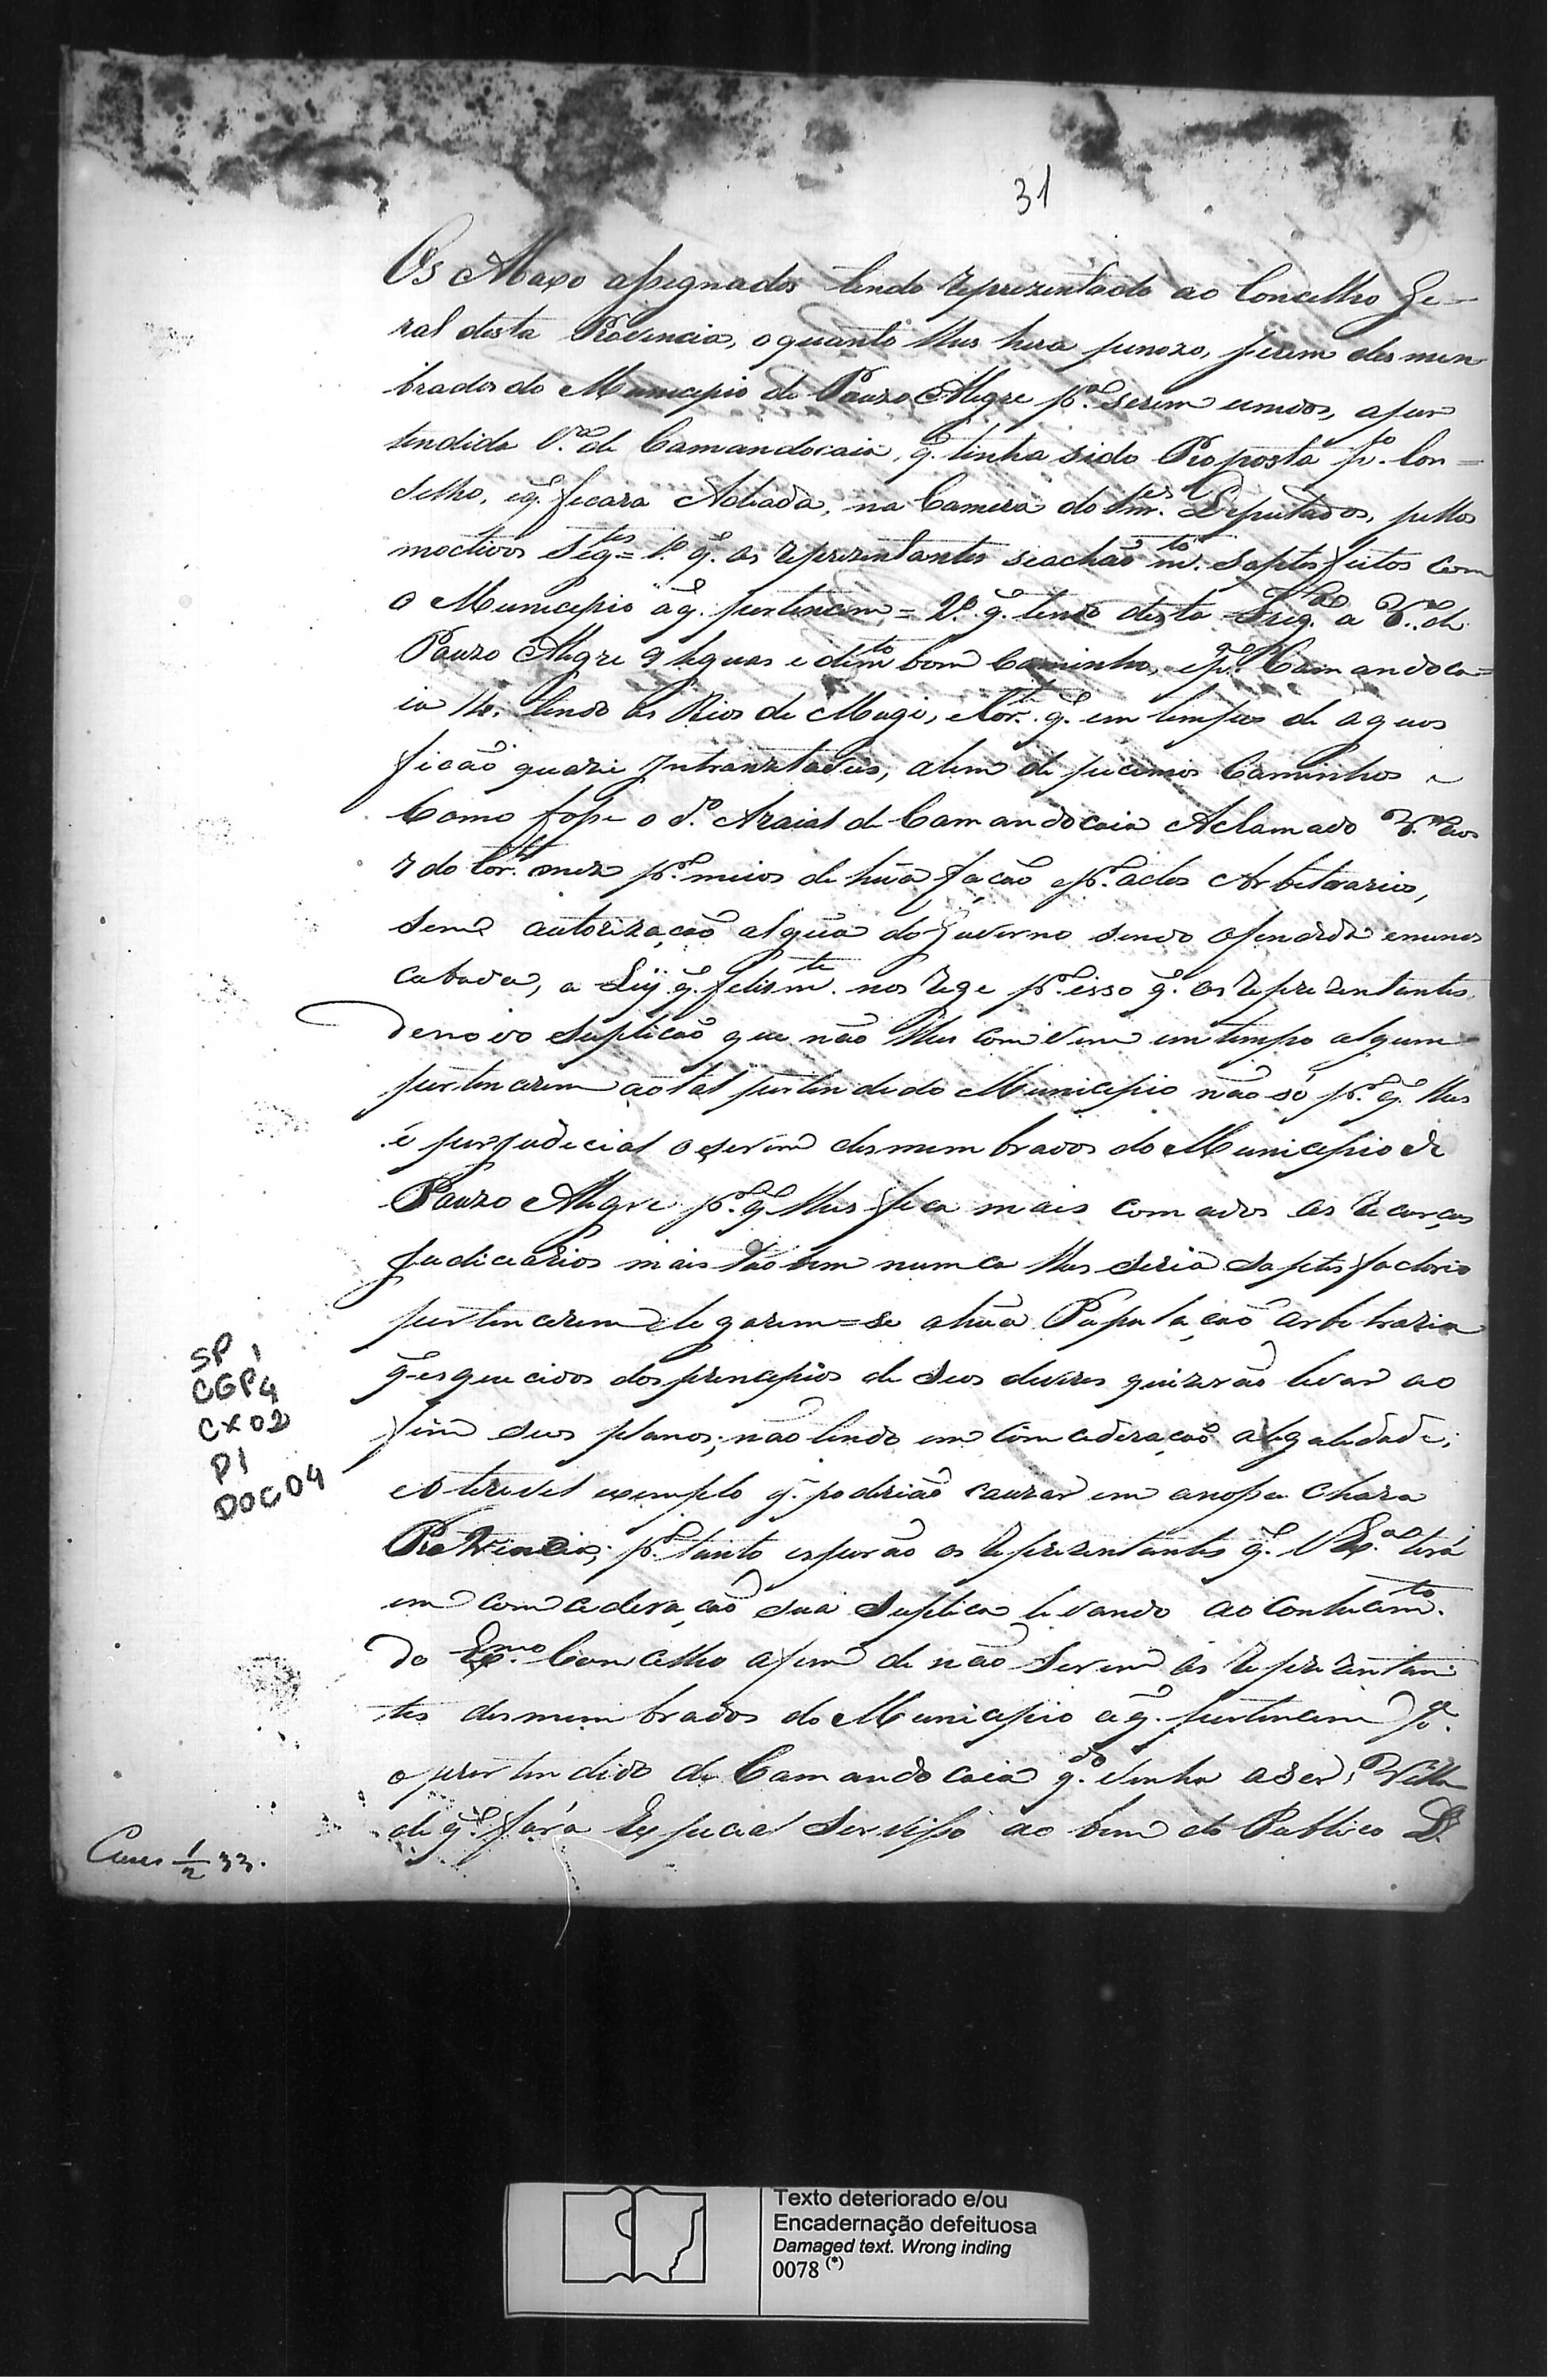 31
Os Abaxo assignados tendo reprezentado ao Concelho Ge-
ral desta Provincia, o quanto lhes hera penozo, serem desmen
brados do Municipio de Pouzo Alegre p.ª serem unidos, a per
tendida V.ª de Camandocaia, q. tinha sido Proposta p.º Con=
selho, e q. ficara Adiada, na Camera do Snr.es Deputados, pellos
moctivos Seg.tes = 1.º q. os reprezentantes se achão m.to saptesfeitos com
o Municipio a q. pertencem = 2.º q. tendo desta Freg.ª a V.ª de
Pouzo Alegre 9 leguas e de m.to bom Caminho, e p.ª Camandoca=
ia 14. tendo os Rios de Mogi, e q. em tempos de aguas
ficão quazi Intranzitaveis, alem de pecimos Caminhos e
Como fosse o d.º Araial de Camandocaia Aclamado V.ª aos
7 do mez p.r meios de hũa facão e p.r actos Arbitrarios,
sem autorização algũa do Guverno sendo ofendida e menos
cabada, a Ley q. felism.te nos rege p.r isso q. os reprezentantes
de novo suplicão que não lhes convem em tempo algum
pertencerem ao tal pertendido Municipio não só p.r q. lhes
é perjudicial o serem desmembrados do Municipio de
Pouzo Alegre p.r q. lhes fica mais comodos os recurços
Judiciarios mais tãobem nunca lhes seria saptisfactorio
pertencerem e legarem=se a hũa Population arbitraria
q. esquecidos dos principios de seos deveres quizerão levar ao
fim seus planos, não tendo em Concideração a legalidade,
e o terivel exemplo q. poderião cauzar em a nossa Chara
Provincia; p.r tanto esperão os reprezentantes q. V. Ex.ª terá
em concideração sua suplica levando ao conhecim.to
do Ex.mo Concelho afim de não serem os reprezentan
tes desmembrados do Municipio a q. pertencem p.ª
o pertendido de Camandocaia q.do venha a ser, Villa
de q. fará Especial Servisso ao bem do Publico D.
SP 1
CGP4
CX02
P1
DOC04
1/2 33.
Texto deteriorado e/ou
Encadernação defeituosa
Damaged text. Wrong inding
0078 (*)